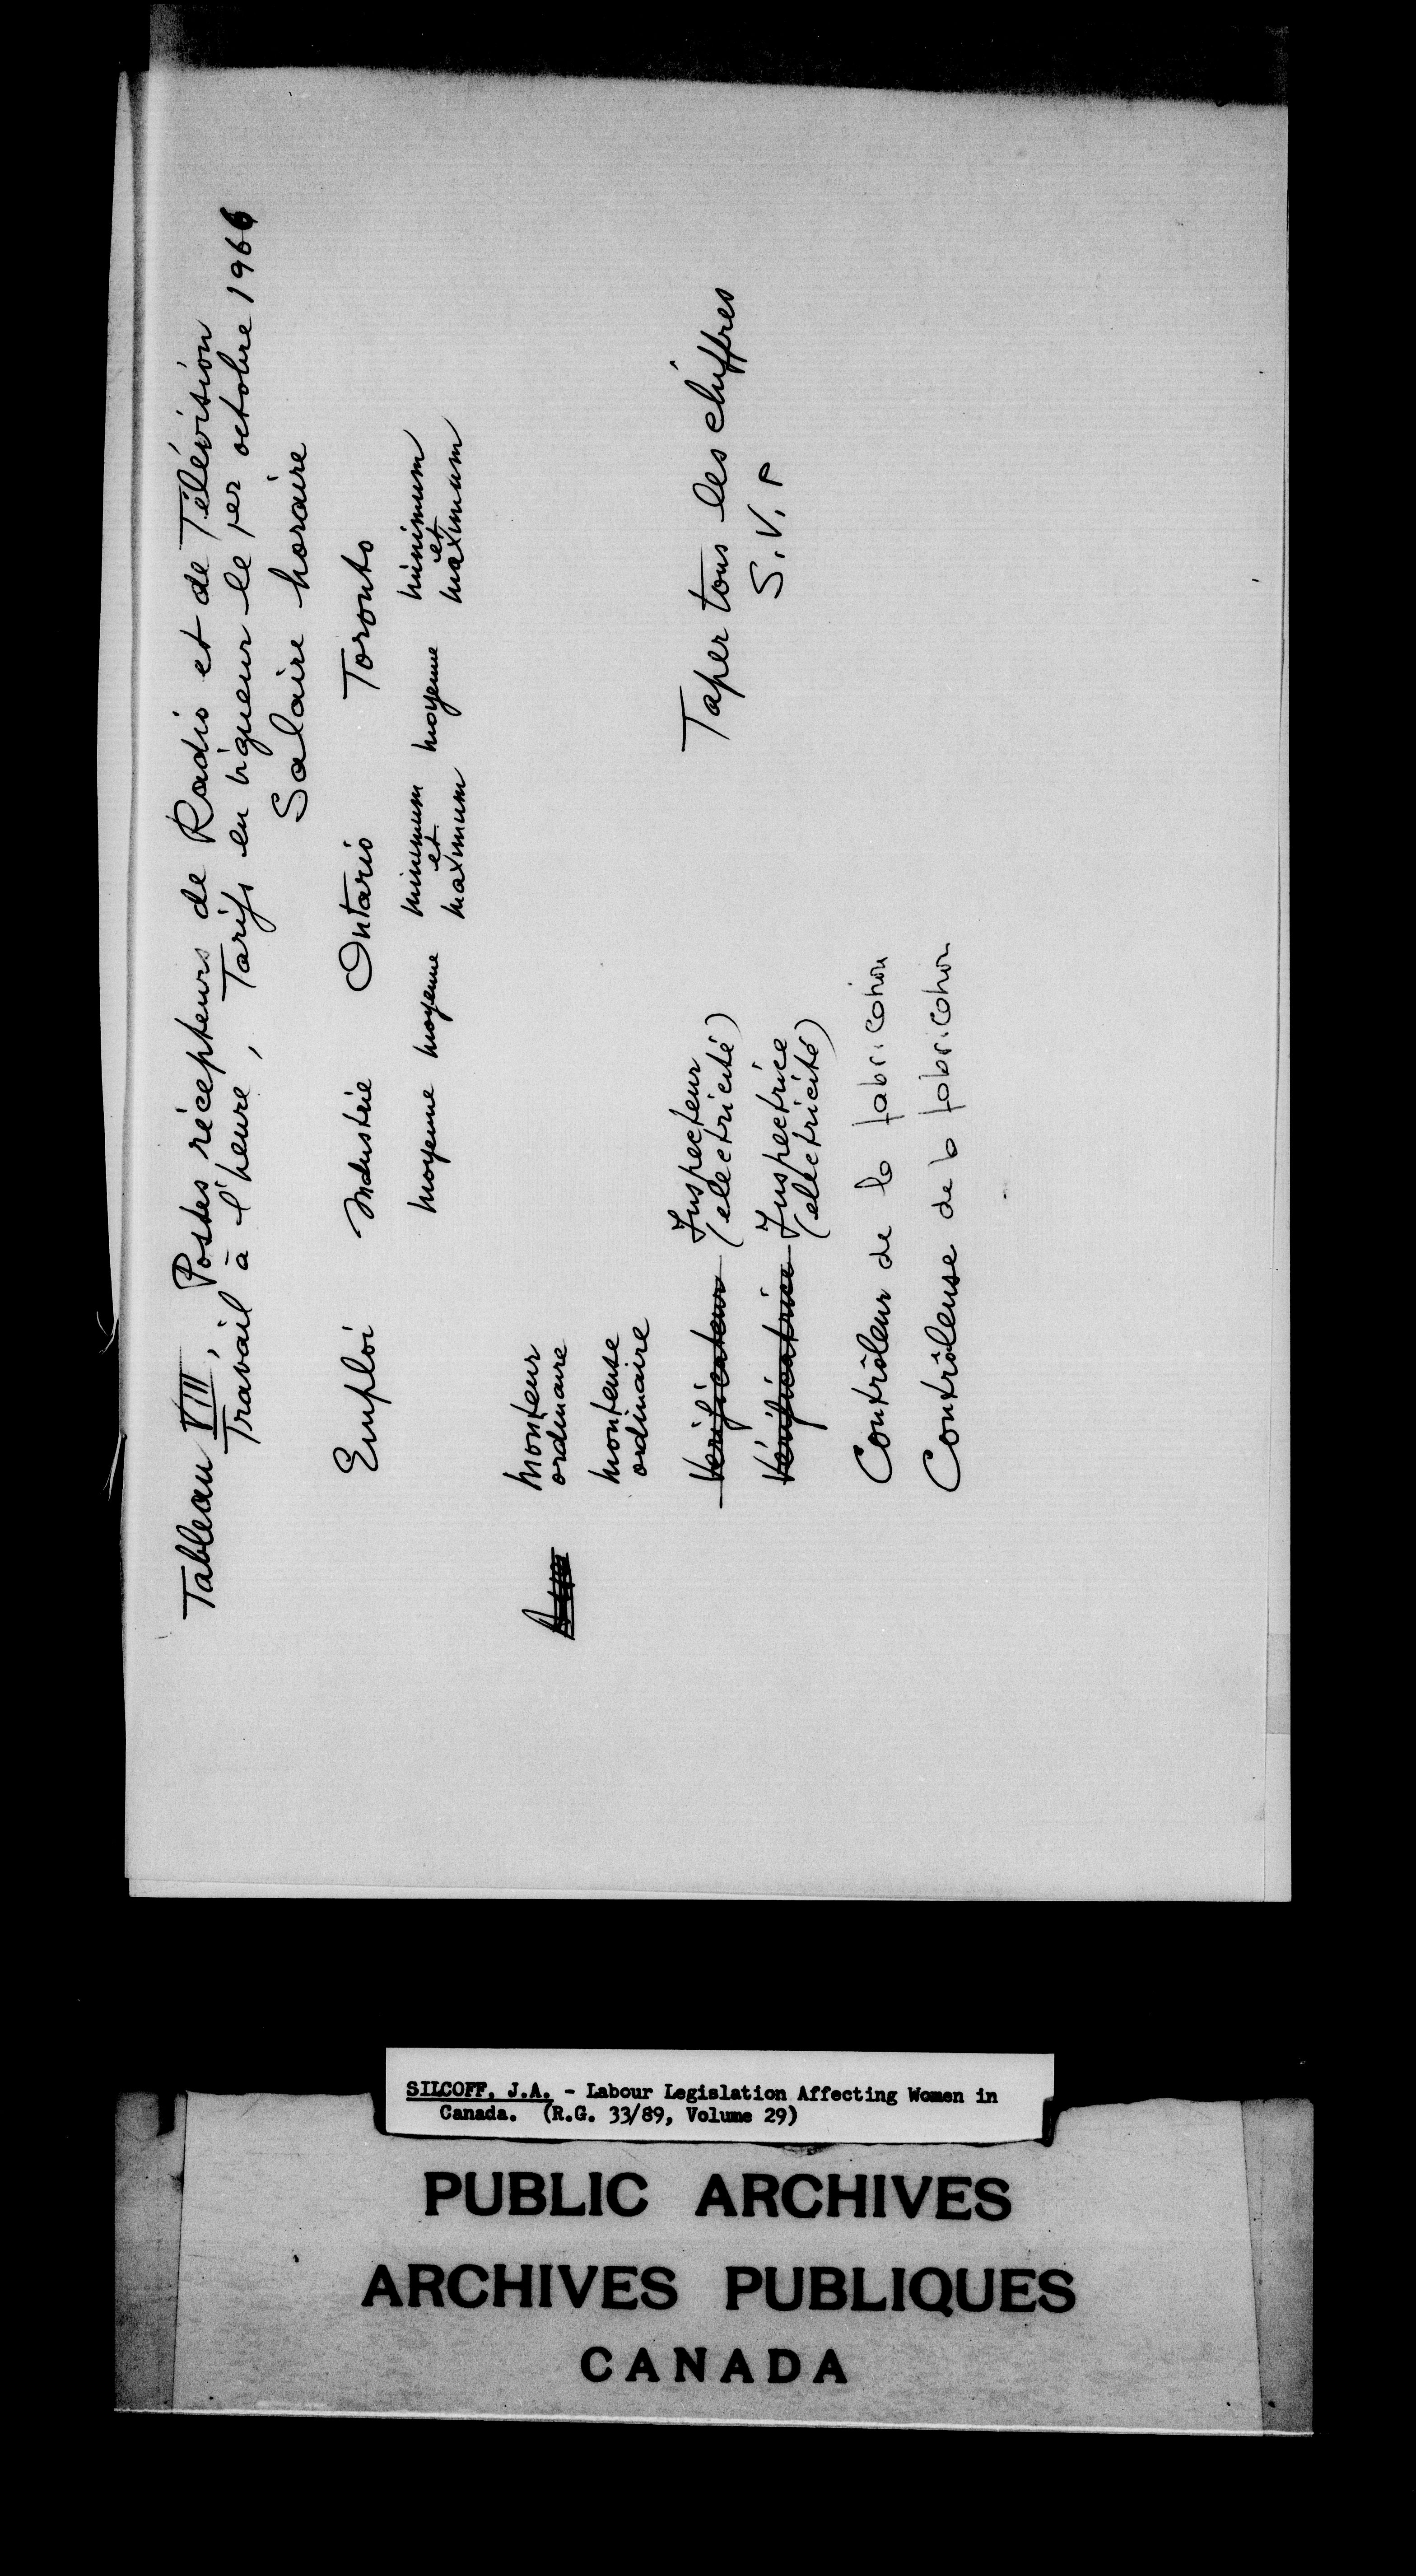 Tableau VIII, Postes récepteurs de Radio et de Télévision
Travail à l'heure, Tarifs en vigueur le 1er octobre 1966
Salaire horaire
Emploi Industrie Ontario Toronto
moyenne moyenne minimum et maximum moyenne minimum et maximum
monteur
ordinaire
monteuse
ordinaire
Vérificateur Inspecteur
(electricité)
Taper tous les chiffres
S.V.P
Vérificatrice Inspectrice
(electricité)
Contrôleur de la fabrication
Contrôleuse de la fabrication
SILCOFF, J.A. - Labour Legislation Affecting Women in
Canada. (R.G. 33/89, Volume 29)
PUBLIC ARCHIVES
ARCHIVES PUBLIQUES
CANADA